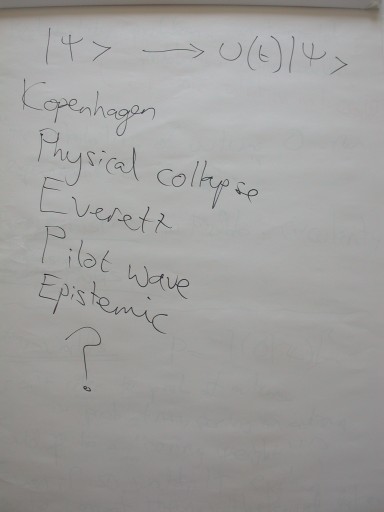 |Ψ> → U(t)|Ψ>
Kopenhagen
Physical collapse
Everett
Pilot wave
Epistemic
?